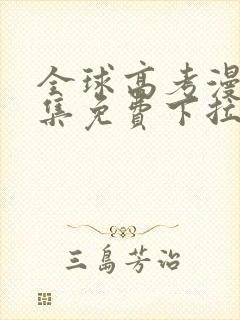 全球高考漫
集免费下拉
三岛芳治